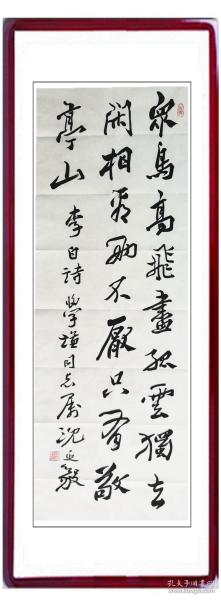 眾鳥高飛盡孤雲獨去
閑相看兩不厭只有敬
亭山 李白詩 學謹同志屬 沈延毅
孔夫子旧书网